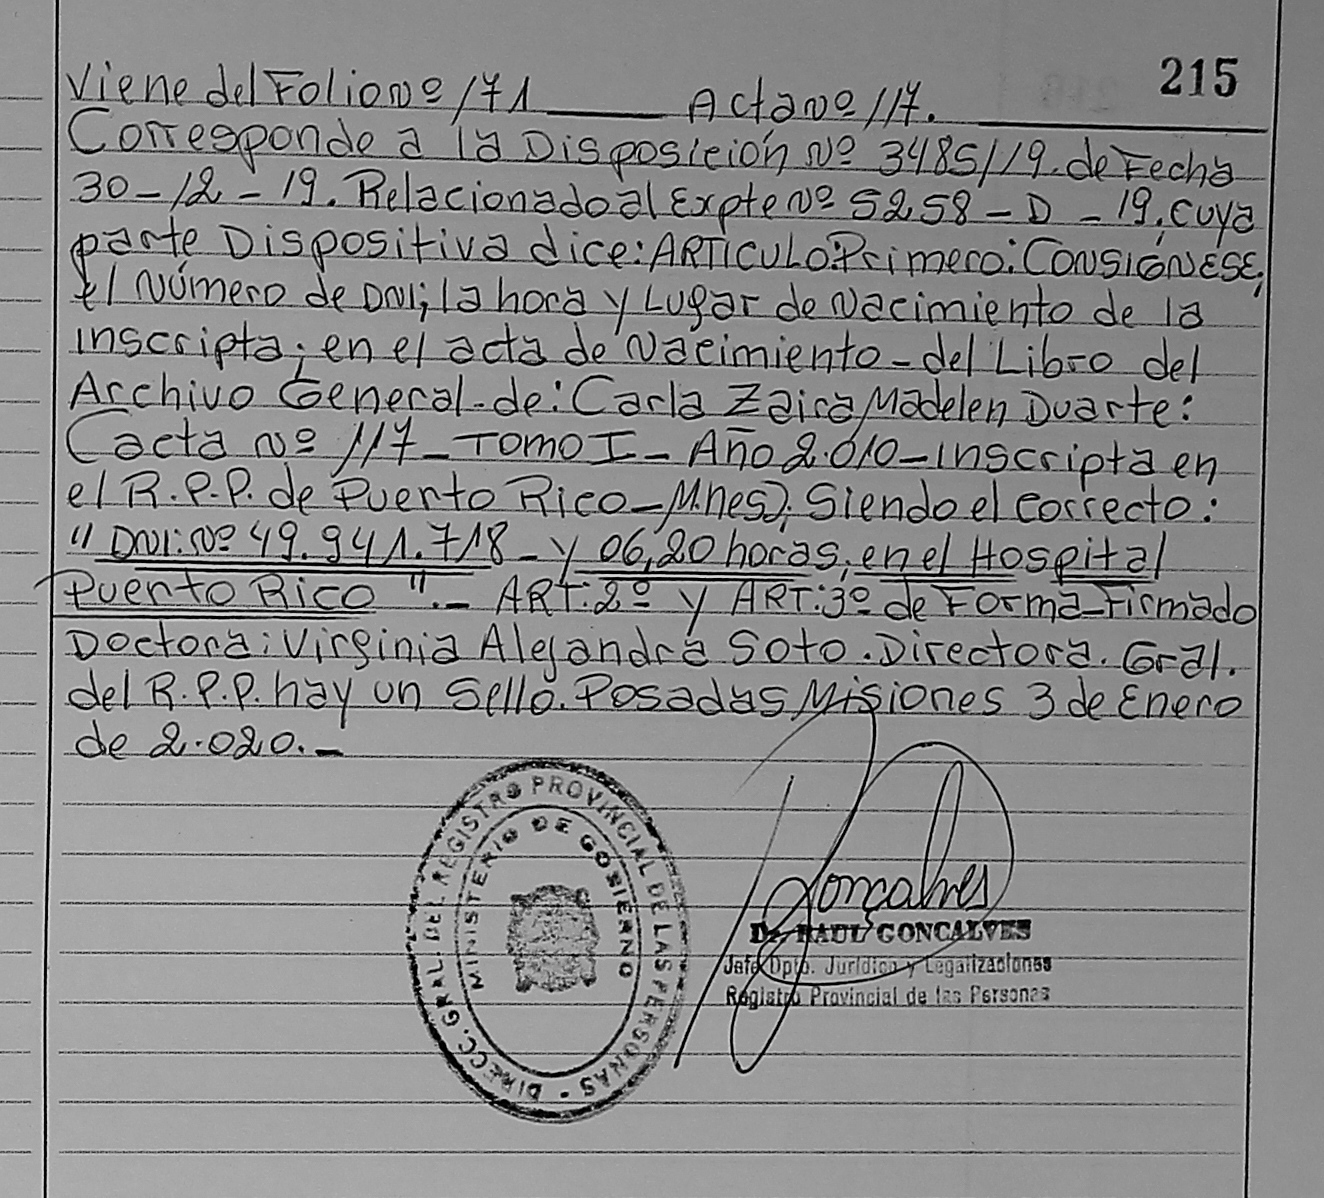 215
Viene del Folio Nº 171 Acta Nº 117.
Corresponde a la Disposición Nº 3485/19. de Fecha
30-12-19. Relacionado al Expte Nº 5258-D-19. cuya
parte Dispositiva dice: ARTICULO: Primero: CONSIGNESE,
el Número de DNI; la hora y Lugar de Nacimiento de la
inscripta; en el acta de Nacimiento-del Libro del
Archivo General-de: Carla Zaira Madelen Duarte:
(acta Nº 117-TOMO I-Año 2.010-inscripta en
el R.P.P. de Puerto Rico-Mnes); Siendo el correcto:
"DNI: Nº 49.941.718-y 06,20 horas; en el Hospital
Puerto Rico".- ART: 2º y ART: 3º de Forma-Firmado
Doctora: Virginia Alejandra Soto. Directora. Gral.
del R.P.P. hay un Sello. Posadas Misiones 3 de Enero
de 2.020.-
DIRECC. GRAL. DEL REGISTRO PROVINCIAL DE LAS PERSONAS -
MINISTERIO DE GOBIERNO
Goncalves
Dr. RAUL GONCALVES
Jefe Dpto. Jurídico y Legalizaciones
Registro Provincial de las Personas